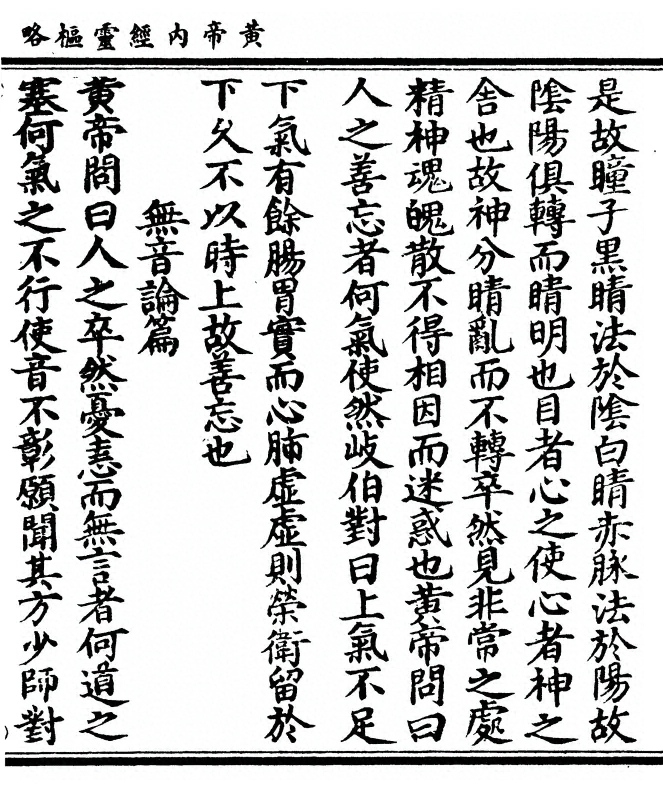 黃帝內經靈樞略
是故瞳子黒睛法於陰白睛赤脉法於陽故
陰陽俱轉而睛明也目者心之使心者神之
舍也故神分睛亂而不轉卒然見非常之處
精神魂魄散不得相因而迷惑也黃帝問曰
人之善忘者何氣使然岐伯對曰上氣不足
下氣有餘腸胃實而心肺虛虛則榮衛留於
下久不以時上故善忘也
無音論篇
黃帝問曰人之卒然憂恚而無言者何道之
塞何氣之不行使音不彰願聞其方少師對